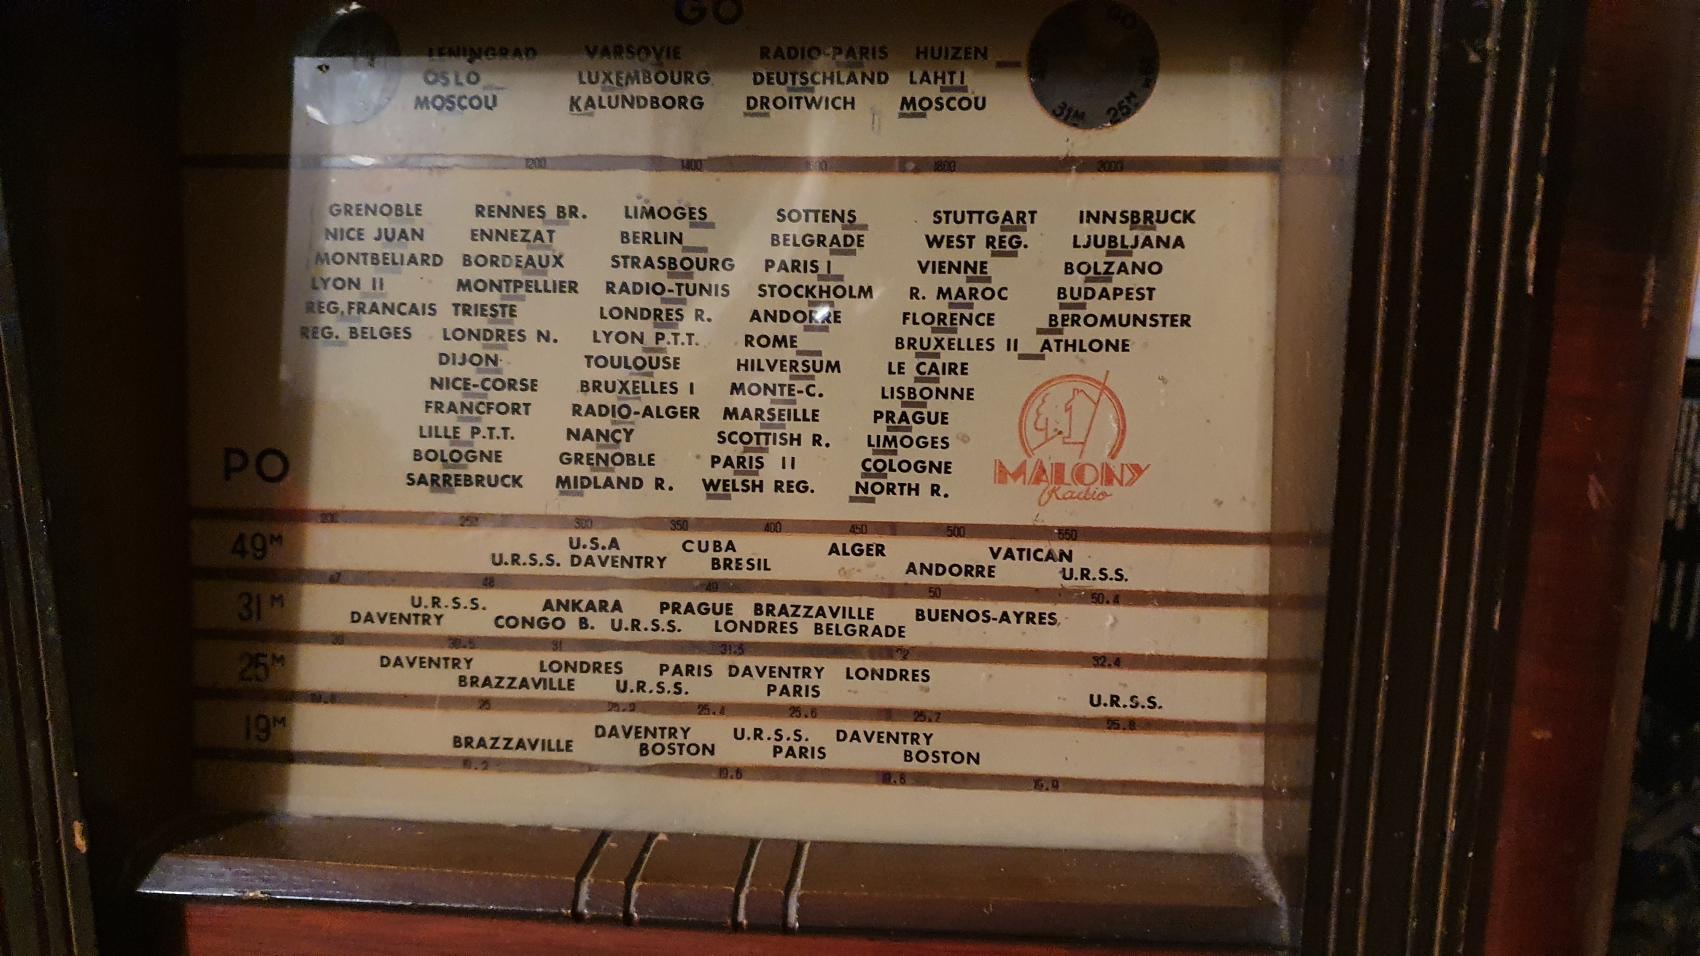 GO
LENINGRAD VARSOVIE RADIO-PARIS HUIZEN
OSLO LUXEMBOURG DEUTSCHLAND LAHTI
MOSCOU KALUNDBORG DROITWICH MOSCOU
31M 25M
1200 1400 1600 1800 2000
GRENOBLE RENNES BR. LIMOGES SOTTENS STUTTGART INNSBRUCK
NICE JUAN ENNEZAT BERLIN BELGRADE WEST REG. LJUBLJANA
MONTBELIARD BORDEAUX STRASBOURG PARIS I VIENNE BOLZANO
LYON II MONTPELLIER RADIO-TUNIS STOCKHOLM R. MAROC BUDAPEST
REG.FRANCAIS TRIESTE LONDRES R. ANDORRE FLORENCE BEROMUNSTER
REG. BELGES LONDRES N. LYON P.T.T. ROME BRUXELLES II ATHLONE
DIJON TOULOUSE HILVERSUM LE CAIRE
NICE-CORSE BRUXELLES I MONTE-C. LISBONNE
FRANCFORT RADIO-ALGER MARSEILLE PRAGUE
LILLE P.T.T. NANCY SCOTTISH R. LIMOGES
PO BOLOGNE GRENOBLE PARIS II COLOGNE MALONY
SARREBRUCK MIDLAND R. WELSH REG. NORTH R. Radio
200 250 300 350 400 450 500 550
49M U.S.A CUBA ALGER VATICAN
U.R.S.S. DAVENTRY BRESIL ANDORRE U.R.S.S.
47 48 49 50 50.4
31M U.R.S.S. ANKARA PRAGUE BRAZZAVILLE BUENOS-AYRES
DAVENTRY CONGO B. U.R.S.S. LONDRES BELGRADE
30 30.5 31 31.5 32 32.4
25M DAVENTRY LONDRES PARIS DAVENTRY LONDRES
BRAZZAVILLE U.R.S.S. PARIS U.R.S.S.
25 25.2 25.4 25.6 25.7 25.8
19M DAVENTRY U.R.S.S. DAVENTRY
BRAZZAVILLE BOSTON PARIS BOSTON
19.2 19.6 19.8 19.9